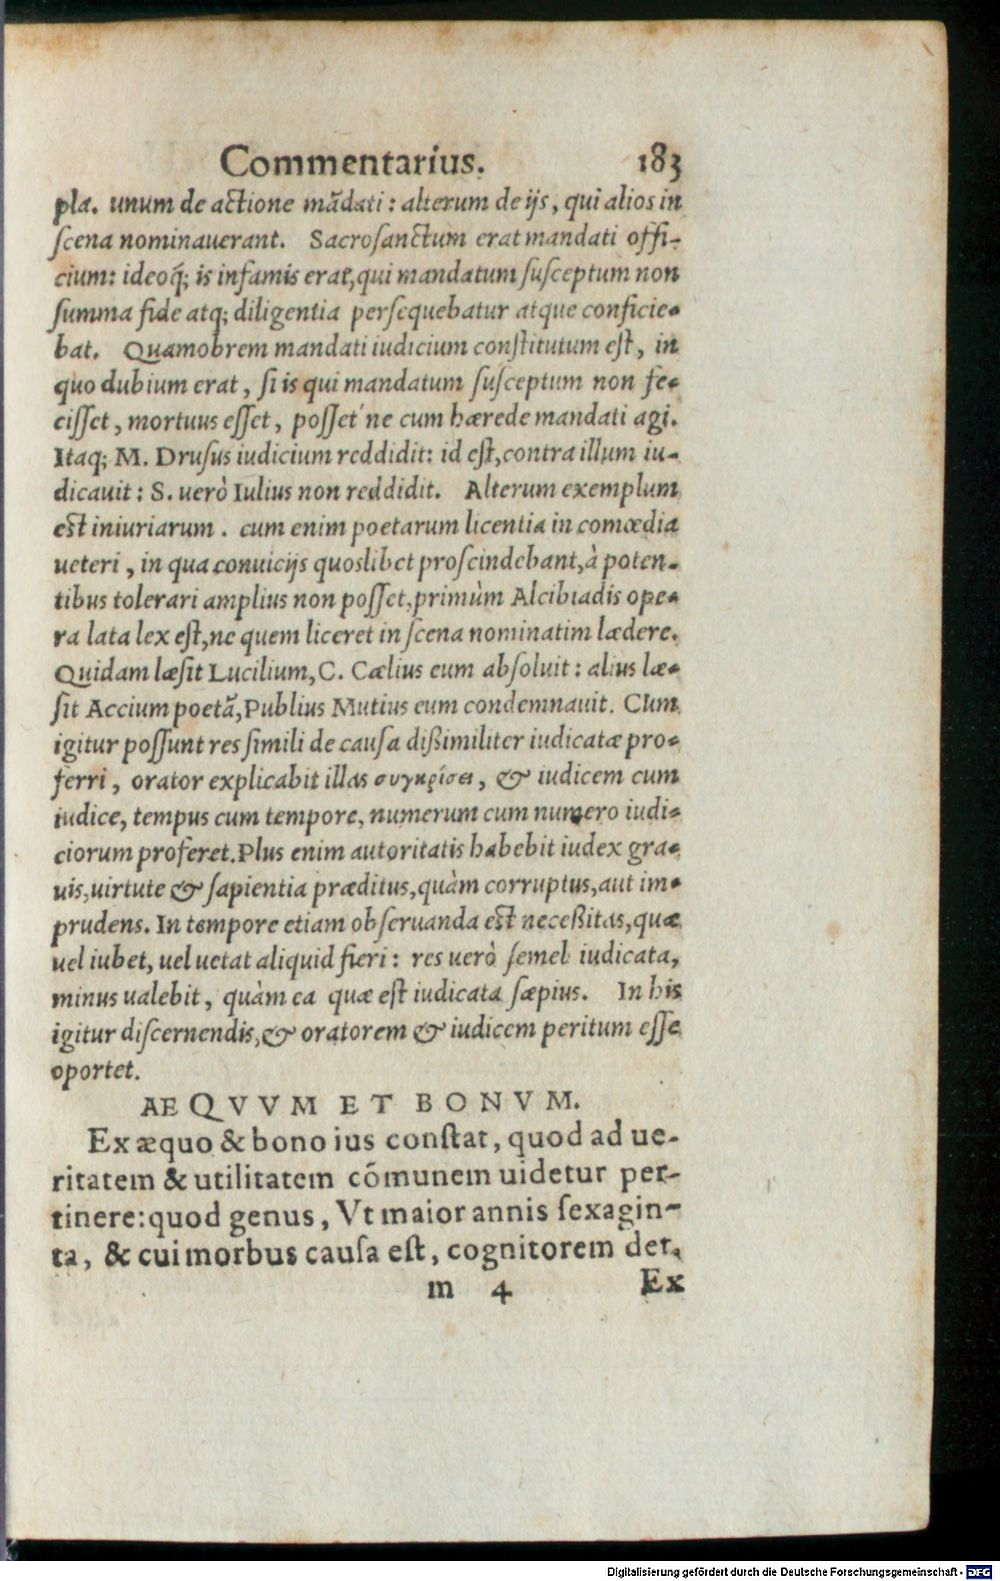 Commentarius. 183
pla. unum de actione mãdati: alterum de ijs, qui alios in
scena nominauerant. Sacrosanctum erat mandati offi-
cium: ideoq́; is infamis erat, qui mandatum susceptum non
summa fide atq; diligentia persequebatur atque conficie-
bat. Quamobrem mandati iudicium constitutum est, in
quo dubium erat, si is qui mandatum susceptum non fe-
cisset, mortuus esset, posset'ne cum hærede mandati agi.
Itaq; M. Drusus iudicium reddidit: id est, contra illum iu-
dicauit: S. uerò Iulius non reddidit. Alterum exemplum
est iniuriarum. cum enim poetarum licentia in comœdia
ueteri, in qua conuicijs quoslibet proscindebant, à poten-
tibus tolerari amplius non posset, primùm Alcibiadis ope-
ra lata lex est, ne quem liceret in scena nominatim lædere.
Quidam læsit Lucilium, C. Cælius eum absoluit: alius læ-
sit Accium poetã, Publius Mutius eum condemnauit. Cum
igitur possunt res simili de causa dißimiliter iudicatæ pro-
ferri, orator explicabit illas συγκρίσει, & iudicem cum
iudice, tempus cum tempore, numerum cum numero iudi-
ciorum proferet. Plus enim autoritatis habebit iudex gra-
uis, uirtute & sapientia præditus, quàm corruptus, aut im-
prudens. In tempore etiam obseruanda est neceßitas, quæ
uel iubet, uel uetat aliquid fieri: res uerò semel iudicata,
minus ualebit, quàm ea quæ est iudicata sæpius. In his
igitur discernendis, & oratorem & iudicem peritum esse
oportet.
AEQVVM ET BONVM.
Ex æquo & bono ius constat, quod ad ue-
ritatem & utilitatem cõmunem uidetur per-
tinere: quod genus, Vt maior annis sexagin-
ta, & cui morbus causa est, cognitorem det.
m 4 Ex
Digitalisierung gefördert durch die Deutsche Forschungsgemeinschaft - DFG